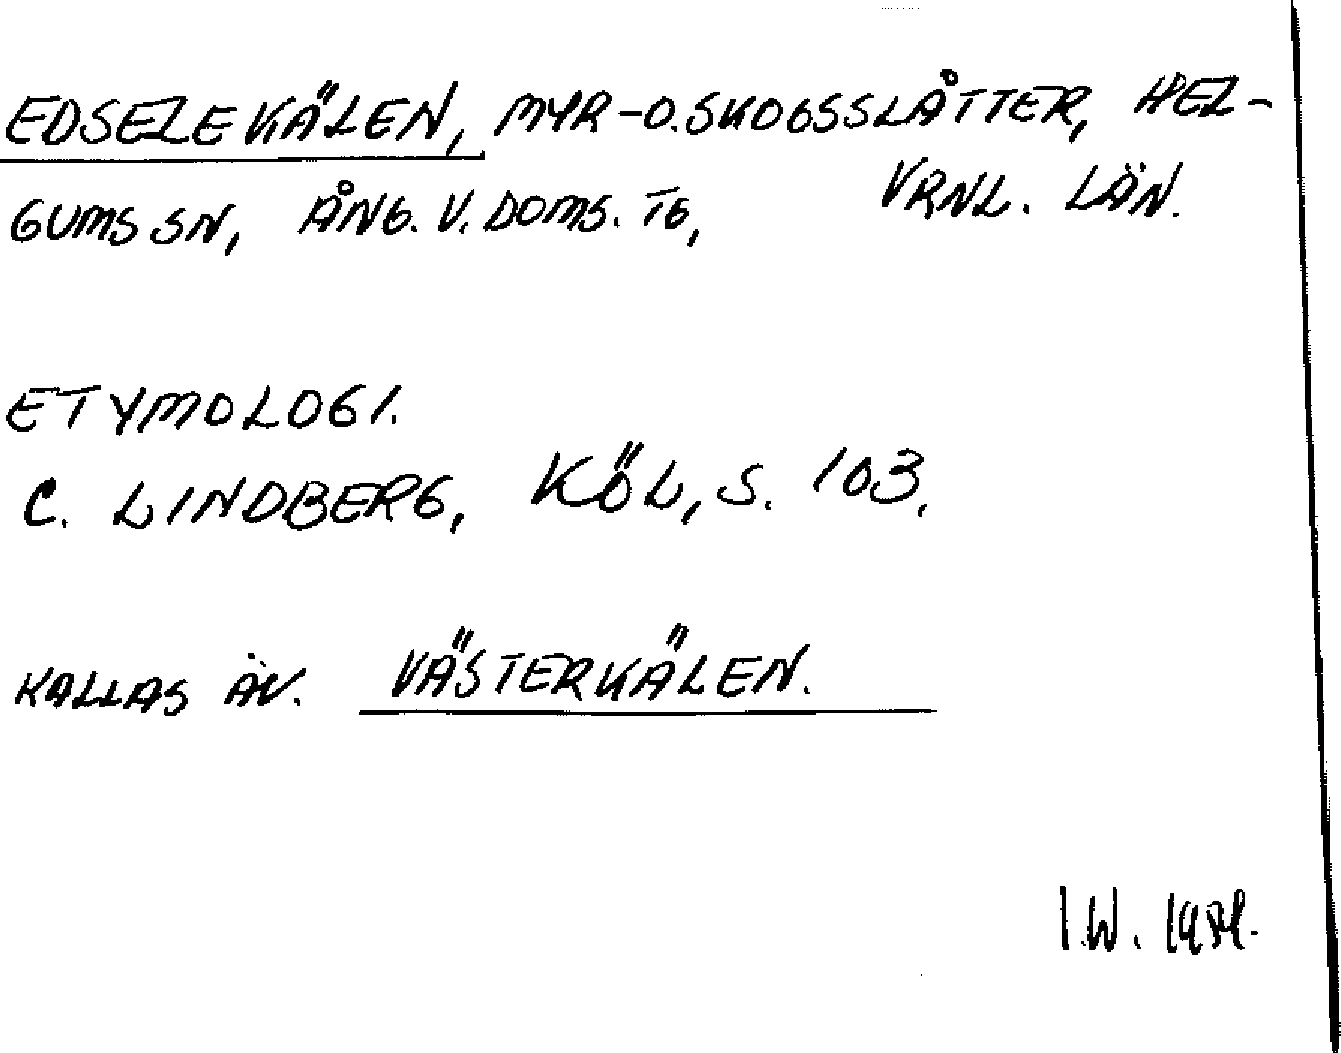 EDSELEKÄLEN, MYR-O. SKOGSSLÅTTER, HEL-
GUMS SN, ÅNG. V. DOMS. TG, VRNL. LÄN.
ETYMOLOGI.
C. LINDBERG, KÖL, S. 103.
KALLAS ÄV. VÄSTERKÄLEN.
I.W.